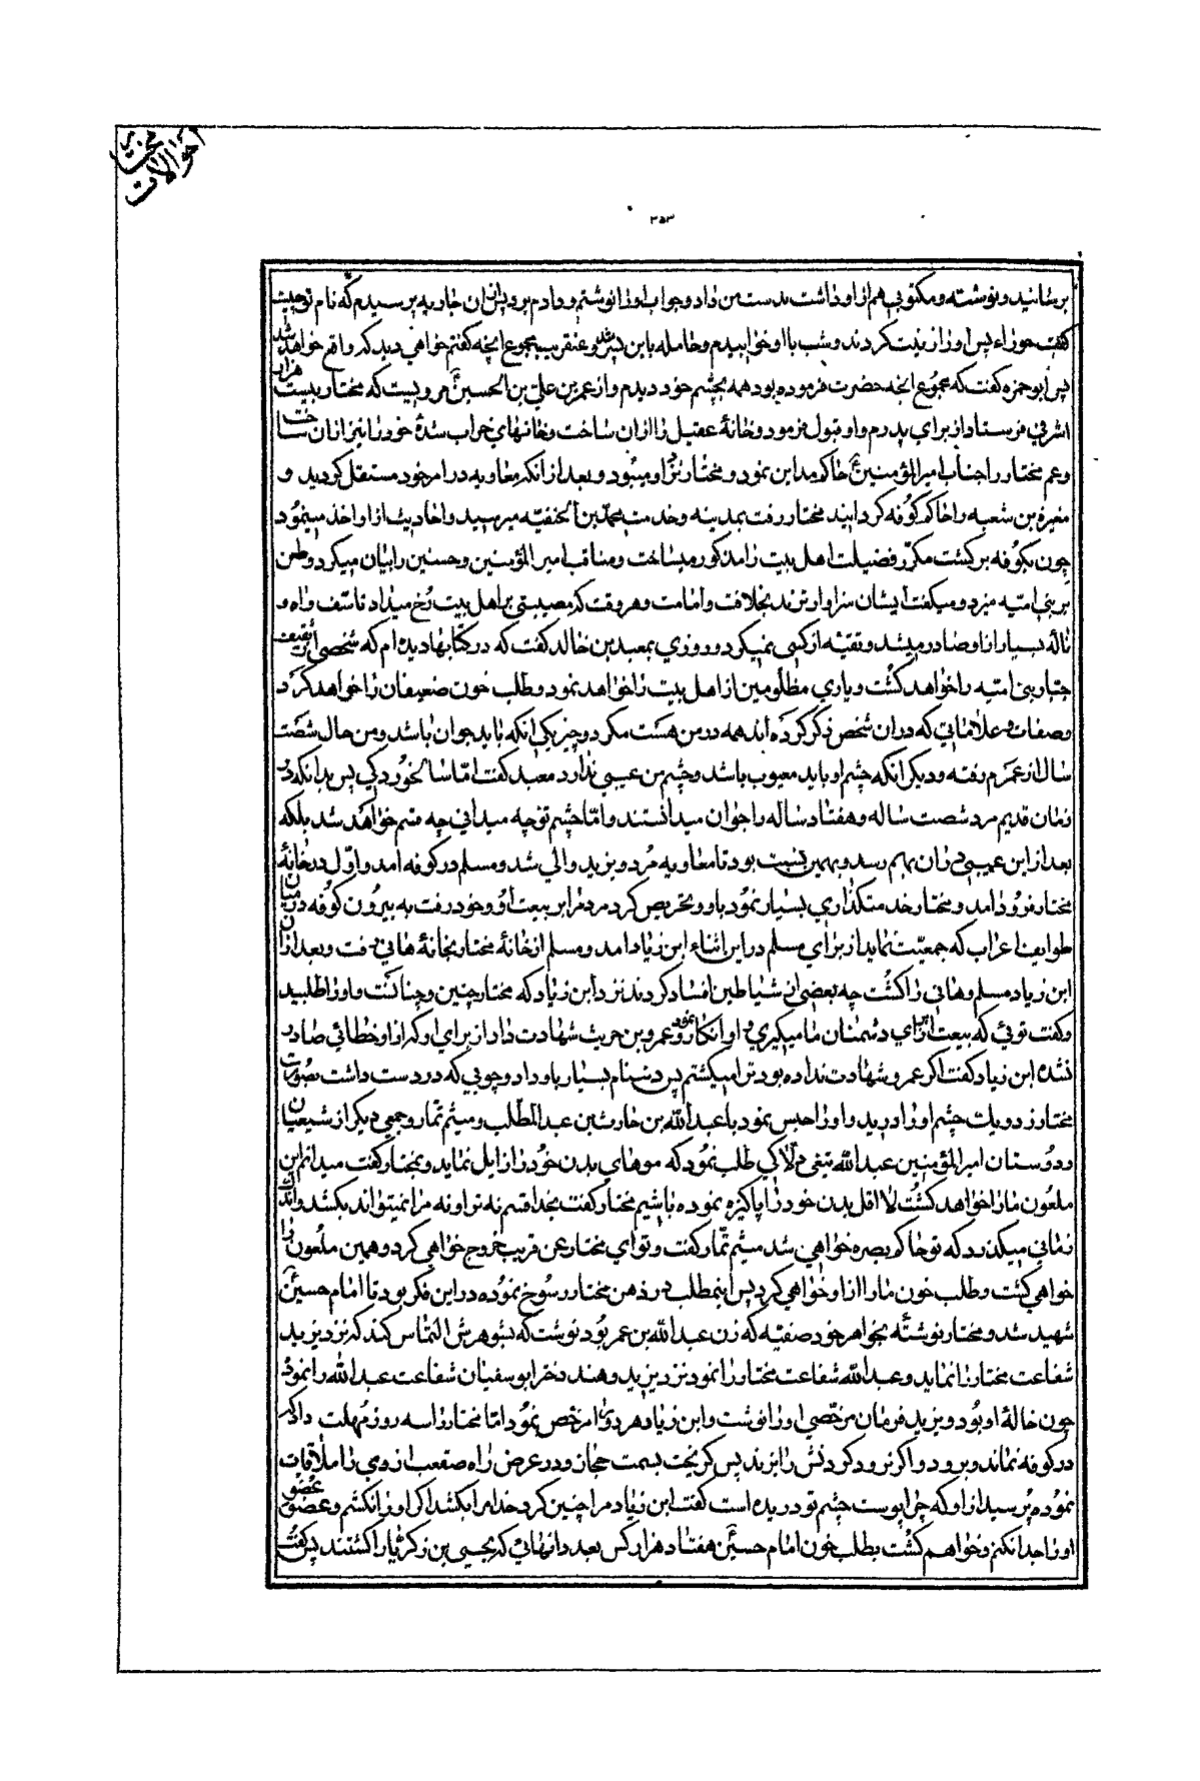 احوالات مختار
۳۵۳
برسانید و نوشته و مکتوبی هم از او داشت بدست من داد و جواب او را نوشتم و دادم برد پس از ان جاریه پرسیدم که نام تو چیست
گفت حوراء پس او را زینت کردند و شب با او خوابیدم و حامله باین پسر شد و عنقریب مجموع انچه گفتم خواهی دید که واقع خواهد شد
پس ابو حمزه گفت که مجموع انچه حضرت فرموده بود همه بچشم خود دیدم و از عمر بن علی بن الحسین مرویست که مختار بیست هزار
اشرفی فرستاد از برای پدرم و او قبول فرمود و خانهٔ عقیل را از ان ساخت و خانهای خراب شدهٔ خود را نیز از ان ساخت
و عم مختار را جناب امیر المؤمنین حاکم مداین نمود و مختار نزد او میبود و بعد از انکه معاویه در امر خود مستقل گردید و
مغیرة بن شعبه را حاکم کوفه گردانید مختار رفت بمدینه و خدمت محمد بن الحنفیه میرسید و احادیث از او اخذ مینمود
چون بکوفه برگشت مکرّر فضیلت اهل بیت را مذکور میساخت و مناقب امیر المؤمنین و حسنین را بیان میکرد و طعن
بر بنی امیّه میزد و میگفت ایشان سزاوارترند بخلافت و امامت و هر وقت که مصیبتی بر اهل بیت رُخ میداد تاسّف و اه و
نالهٔ بسیار از او صادر میشد و تقیّه از کسی نمیکرد و روزی بمعبد بن خالد گفت که در کتابها دیده ام که شخصی از ثقیف
جبّار بنی امیّه را خواهد کشت و یاری مظلومین از اهل بیت را خواهد نمود و طلب خون ضعیفان را خواهد کرد
و صفات و علاماتی که در ان شخص ذکر کرده اند همه در من هست مگر دو چیز یکی انکه باید جوان باشد و من حال شصت
سال از عمرم رفته و دیگر انکه چشم او باید معیوب باشد و چشم من عیبی ندارد معبد گفت امّا سالخوردگی پس بدانکه در
زمان قدیم مرد شصت ساله و هفتاد ساله را جوان میدانستند و امّا چشم تو چه میدانی چه قسم خواهد شد بلکه
بعد از این عیبی در ان بهم رسد و بهمین نسبت بود تا معاویه مُرد و یزید والی شد و مسلم در کوفه امد و اوّل در خانهٔ
مختار فرود امد و مختار خدمتگذاری بسیار نمود باو و تحریص کرد مردم را بر بیعت او و خود رفت به بیرون کوفه در میان
طوایف اعراب که جمعیّت نماید از برای مسلم در این اثناء ابن زیاد امد و مسلم از خانهٔ مختار بخانهٔ هانی رفت و بعد از ان
ابن زیاد مسلم و هانی را کشت چه بعضی از شیاطین افساد کردند نزد ابن زیاد که مختار چنین و چنانست و او را طلبید
و گفت توئی که بیعت از برای دشمنان ما میگیری او انکار نمود و عمرو بن حریث شهادت داد از برای او که از او خطائی صادر
نشده ابن زیاد گفت اگر عمرو شهادت نداده بود ترا میکشتم پس دشنام بسیار باو داد و چوبی که در دست داشت بصورت
مختار زد و یک چشم او را درید و او را حبس نمود با عبد الله بن حارث بن عبد المطّلب و میثم تمّار و جمعی دیگر از شیعیان
و دوستان امیر المؤمنین عبد الله تیغی دلاکی طلب نمود که موهای بدن خود را زایل نماید و بمختار گفت میدانم این
ملعون ما را خواهد کشت لا اقل بدن خود را پاکیزه نموده باشیم مختار گفت بخدا قسم نه ترا و نه مرا نمیتواند بکشد و اندک
زمانی میگذرد که تو حاکم بصره خواهی شد میثم تمّار گفت و تو ای مختار عن قریب خروج خواهی کرد و همین ملعون را
خواهی کشت و طلب خون ما را از او خواهی کرد پس اینمطلب در ذهن مختار رسوخ نموده در این فکر بود تا امام حسین
شهید شد و مختار نوشته بخواهر خود صفیّه که زن عبد الله بن عمر بود نوشت که بشوهرش التماس کند که نزد یزید
شفاعت مختار را نماید و عبد الله شفاعت مختار را نمود نزد یزید و هند دختر ابو سفیان شفاعت عبد الله را نمود
چون خالهٔ او بود و یزید فرمان مرخّصی او را نوشت و ابن زیاد هر دو را مرخّص نمود امّا مختار را سه روز مُهلت داد که
در کوفه نماند و برود و اگر نرود گردنش را بزند پس گریخت بسمت حجاز و در عرض راه صقعب ازدی را ملاقات
نموده پرسید از او که چرا پوست چشم تو دریده است گفت ابن زیاد مرا چنین کرد خدا مرا بکشد اگر او را نکشم و عضو عضو
او را جدا نکنم و خواهم کشت بطلب خون امام حسین هفتاد هزار کس بعدد انهائی که بیحیی بن زکریّا را کشتند پس گفت